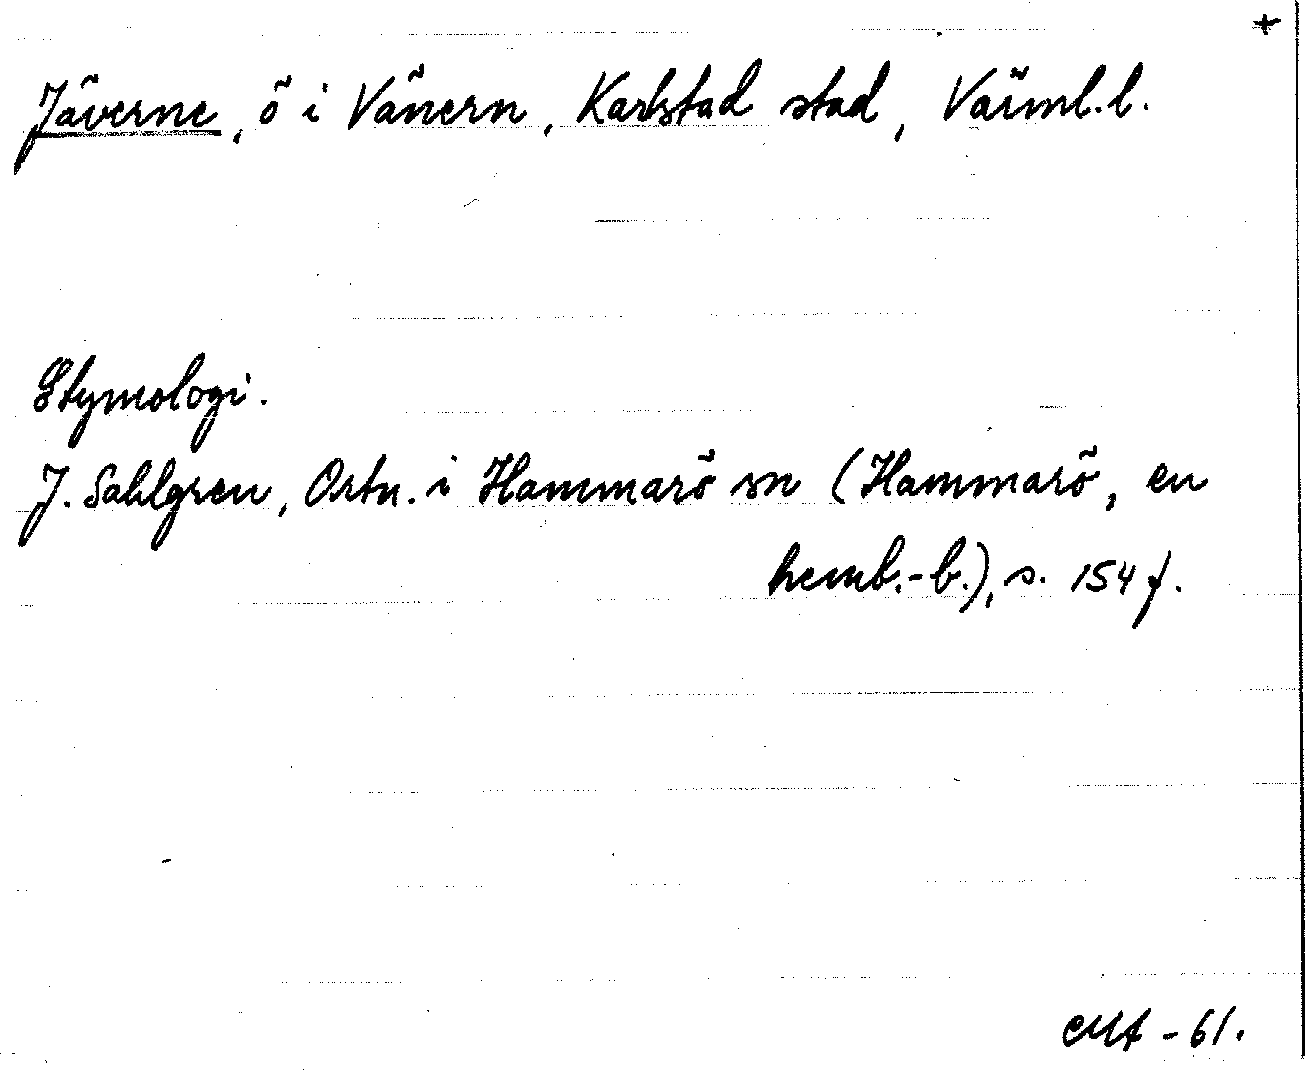 +
Jäverne, ö i Vänern, Karlstad stad, Värml.l.
Etymologi.
J. Sahlgren, Ortn. i Hammarö sn (Hammarö, en
hemb.-b.), s. 154 f.
-61.